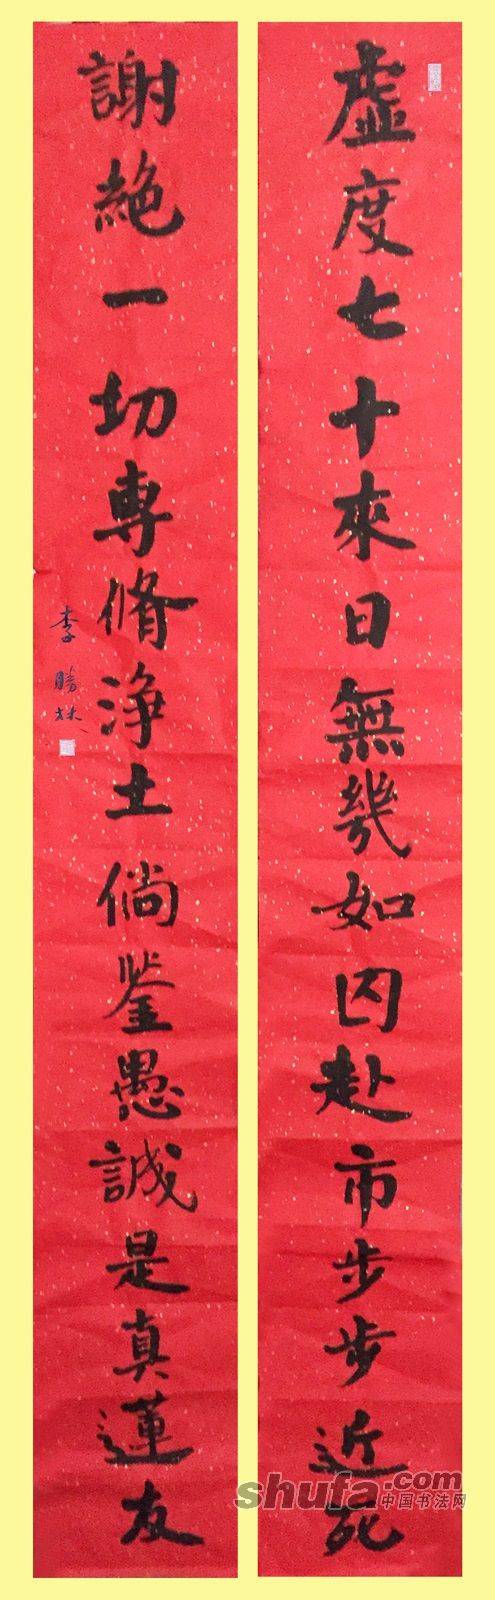 虛度七十來日無幾如囚赴市步步近死
謝絶一切專脩淨土倘鉴愚誠是真蓮友
李勝林
shufa.com
中国书法网